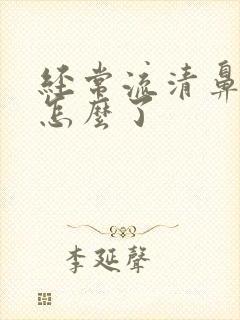 经常流清鼻
怎麼了
李延聲